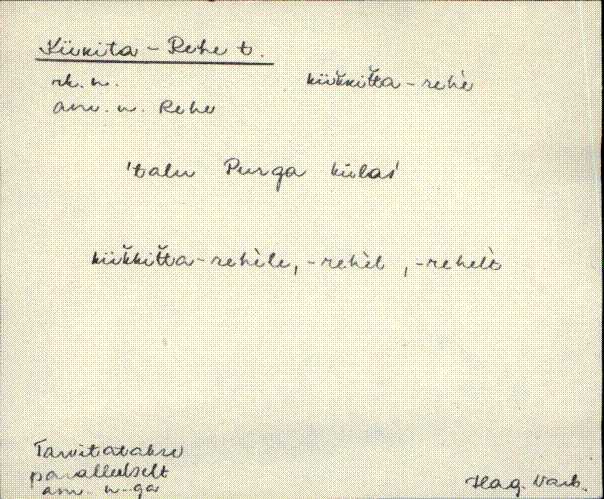 Küükita-Rehe t.
rk. n. kük̆kit̆ta-rehè
am. n. Rehe
'talu Purga külas'
kük̆kit̆ta-rehèle, -rehèl, -rehelt
Tarvitatakse
paralleelselt
am. n-ga
Hag. Varb.